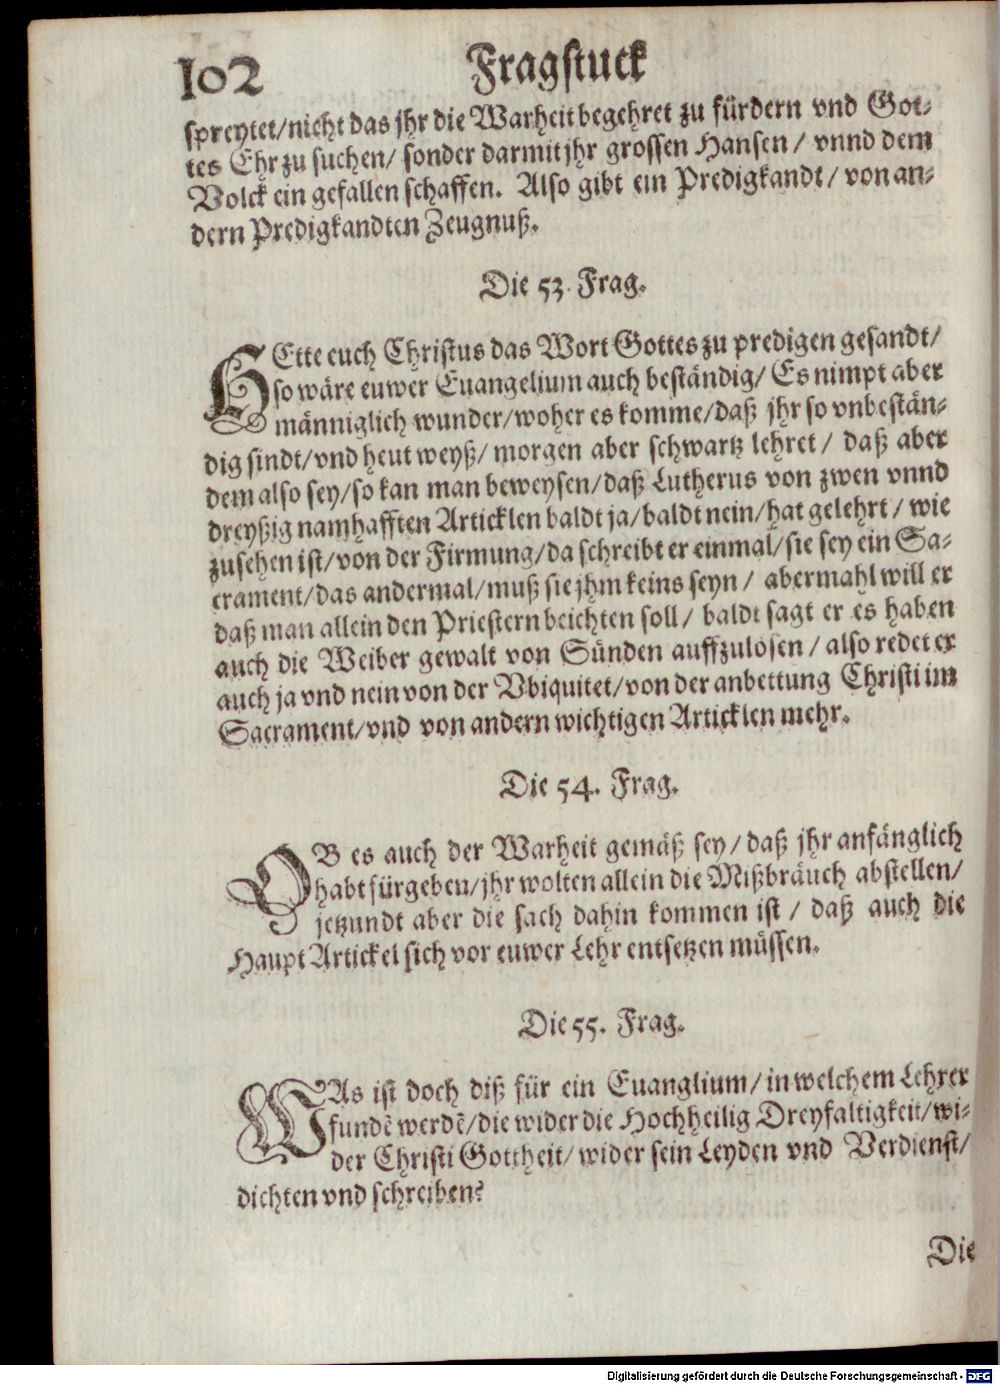 102 Fragstuck
spreytet/nicht das jhr die Warheit begehret zu fürdern vnd Got-
tes Ehr zu suchen/ sonder darmit jhr grossen Hansen/ vnnd dem
Volck ein gefallen schaffen. Also gibt ein Predigkandt/ von an-
dern Predigkandten Zeugnuß.
Die 53. Frag.
HEtte euch Christus das Wort Gottes zu predigen gesandt/
so wäre euwer Euangelium auch beständig/ Es nimpt aber
männiglich wunder/woher es komme/daß jhr so vnbestän-
dig sindt/vnd heut weyß/ morgen aber schwartz lehret/ daß aber
dem also sey/so kan man beweysen/daß Lutherus von zwen vnnd
dreyßig namhafften Articklen baldt ja/baldt nein/hat gelehrt/ wie
zusehen ist/von der Firmung/da schreibt er einmal/sie sey ein Sa-
crament/das andermal/muß sie jhm keins seyn/ abermahl will er
daß man allein den Priestern beichten soll/ baldt sagt er es haben
auch die Weiber gewalt von Sünden auffzulösen/ also redet er
auch ja vnd nein von der Vbiquitet/von der anbettung Christi im
Sacrament/vnd von andern wichtigen Articklen mehr.
Die 54. Frag.
OB es auch der Warheit gemäß sey/daß jhr anfänglich
habt fürgeben/jhr wolten allein die Mißbräuch abstellen/
jetzundt aber die sach dahin kommen ist/ daß auch die
Haupt Artickel sich vor euwer Lehr entsetzen müssen.
Die 55. Frag.
WAs ist doch diß für ein Euanglium/in welchem Lehrer
fundē werdē/die wider die Hochheilig Dreyfaltigkeit/wi-
der Christi Gottheit/wider sein Leyden vnd Verdienst/
dichten vnd schreiben?
Die
Digitalisierung gefördert durch die Deutsche Forschungsgemeinschaft - DFG